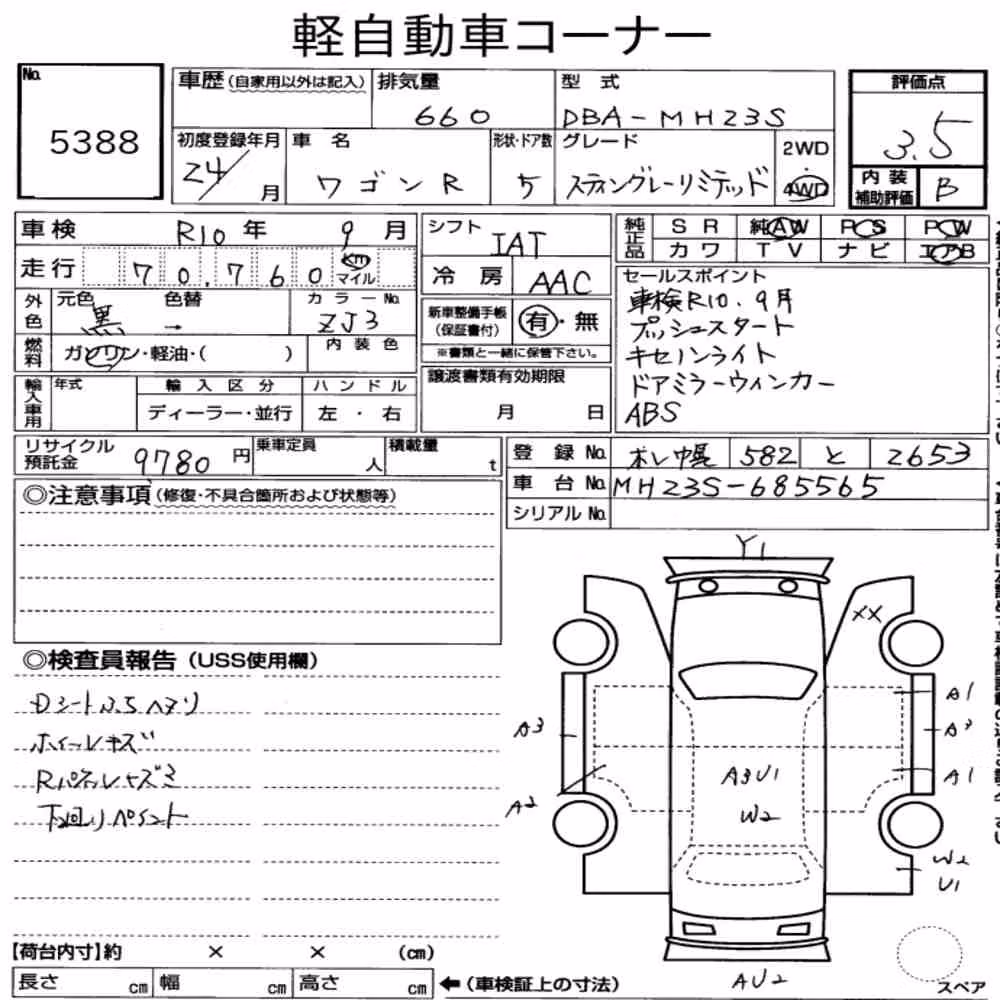 軽自動車コーナー
No.
5388
車歴(自家用以外は記入)
排気量
660
型 式
DBA-MH23S
評価点
3.5
初度登録年月
24/ 月
車 名
ワゴンR
形状・ドア数
5
グレード
スティングレーリミテッド
2WD
・
4WD
内装
補助評価
B
車検
R10 年 9 月
走行
70,760
Km
マイル
シフト
IAT
冷 房
AAC
純正品
SR
純AW
PS
PW
カワ
TV
ナビ
エアB
外色
元色
黒
色替
→
カラーNo.
ZJ3
燃料
ガソリン・軽油・( )
内装色
新車整備手帳
(保証書付)
有・無
※書類と一緒に保管下さい。
セールスポイント
車検R10.9月
プッシュスタート
キセノンライト
ドアミラーウィンカー
ABS
輸入車用
年式
輸入区分
ディーラー・並行
ハンドル
左・右
譲渡書類有効期限
月 日
リサイクル
預託金
9780 円
乗車定員
人
積載量
t
登録No.
札幌 582 と 2653
車台No.
MH23S-685565
シリアルNo.
◎注意事項(修復・不具合箇所および状態等)
◎検査員報告(USS使用欄)
ホイールキズ
下回りペイント
Y1
XX
A1
A3
A3
A1
A2
A3U1
W2
W2
U1
AU2
スペア
【荷台内寸】約 × × (cm)
長さ cm
幅 cm
高さ cm
←(車検証上の寸法)